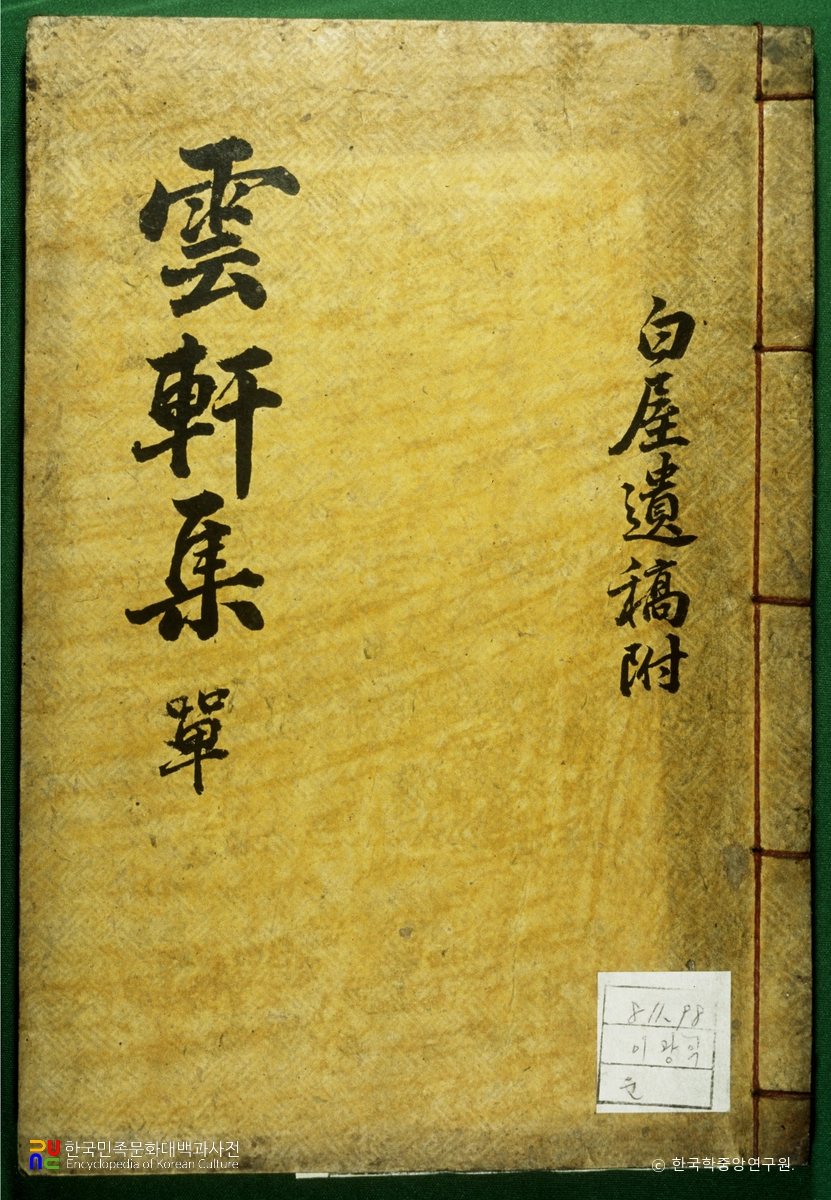 雲軒集 單
白屋遺稿附
811.98
이광익
운
한국민족문화대백과사전
Encyclopedia of Korean Culture
© 한국학중앙연구원.